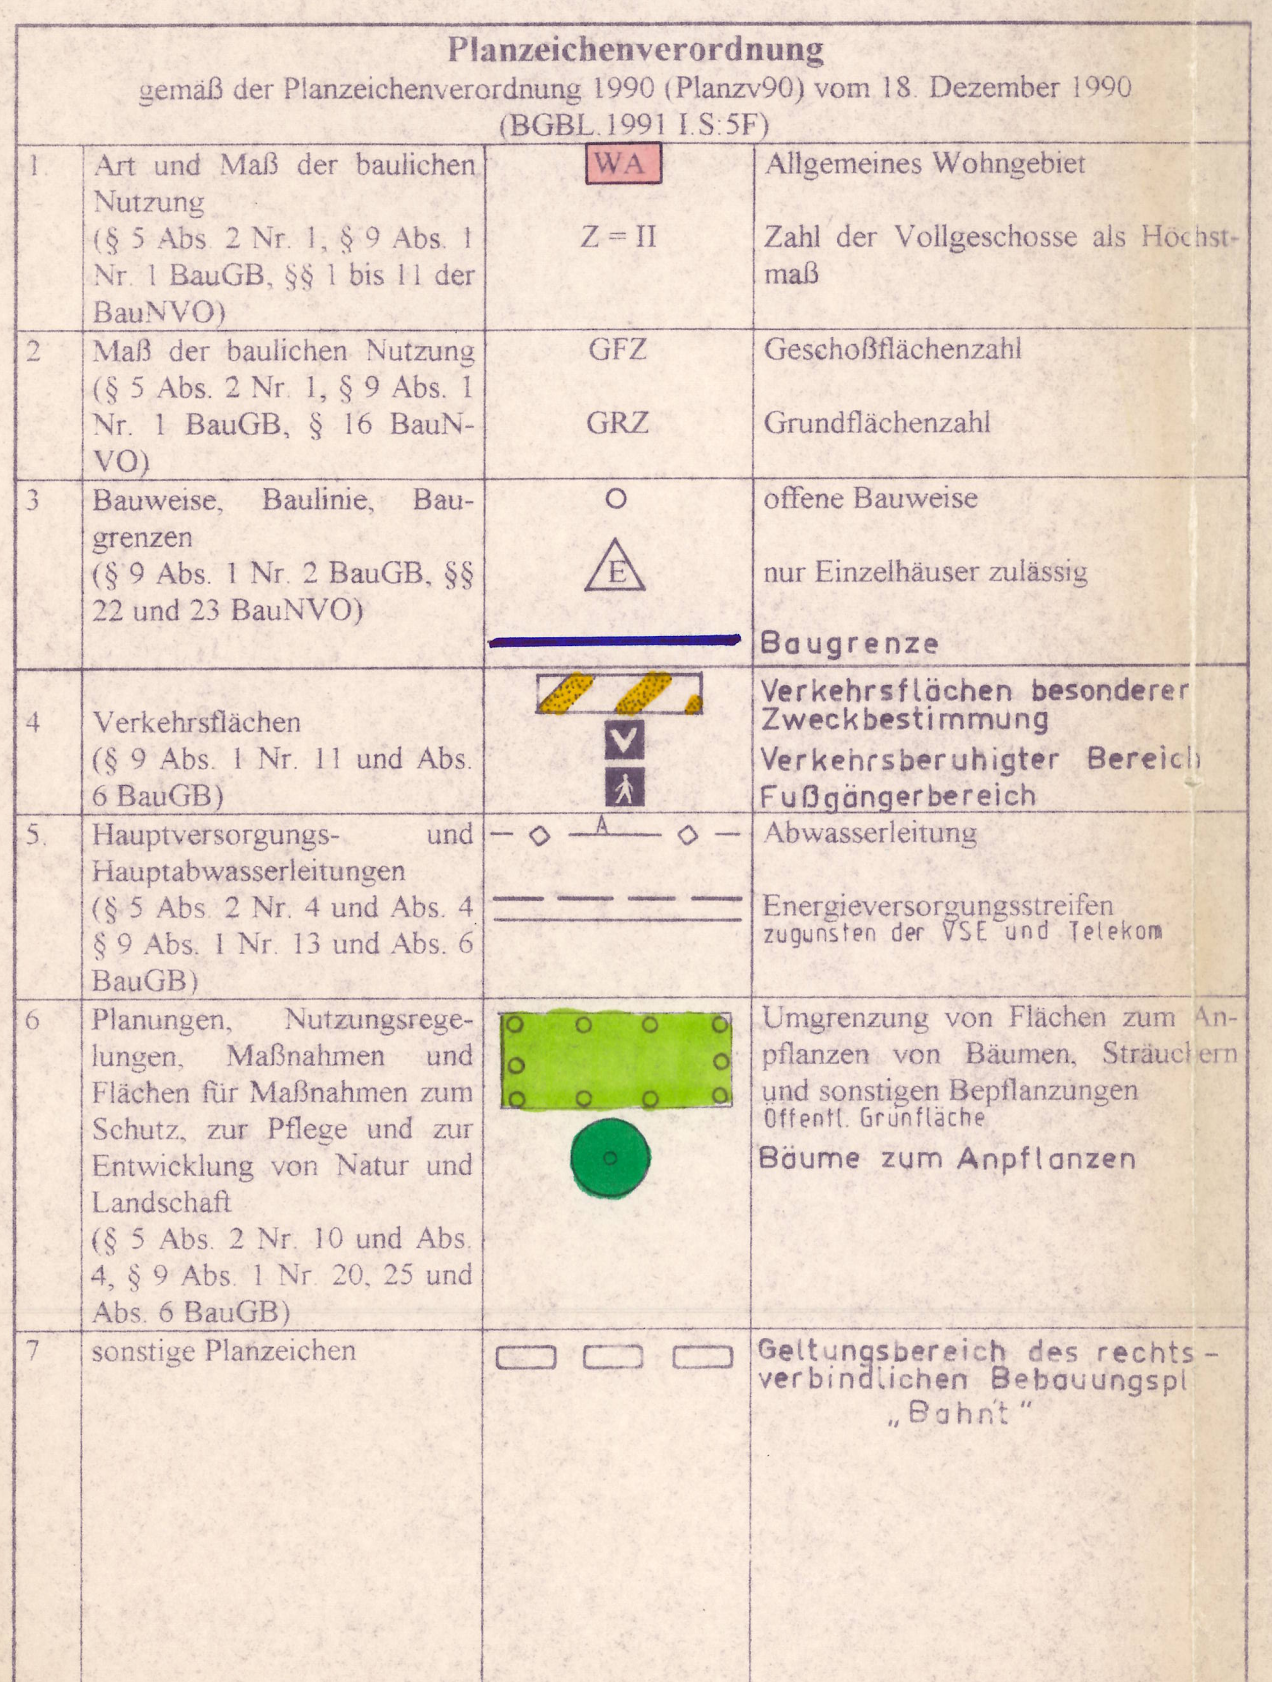 Planzeichenverordnung
gemäß der Planzeichenverordnung 1990 (Planzv90) vom 18. Dezember 1990
(BGBL.1991 I.S:5F)
1.
Art und Maß der baulichen
Nutzung
(§ 5 Abs. 2 Nr. 1, § 9 Abs. 1
Nr. 1 BauGB, §§ 1 bis 11 der
BauNVO)
WA
Z = II
Allgemeines Wohngebiet
Zahl der Vollgeschosse als Höchst-
maß
2
Maß der baulichen Nutzung
(§ 5 Abs. 2 Nr. 1, § 9 Abs. 1
Nr. 1 BauGB, § 16 BauN-
VO)
GFZ
GRZ
Geschoßflächenzahl
Grundflächenzahl
3
Bauweise, Baulinie, Bau-
grenzen
(§ 9 Abs. 1 Nr. 2 BauGB, §§
22 und 23 BauNVO)
O
E
offene Bauweise
nur Einzelhäuser zulässig
Baugrenze
4
Verkehrsflächen
(§ 9 Abs. 1 Nr. 11 und Abs.
6 BauGB)
V
Verkehrsflächen besonderer
Zweckbestimmung
Verkehrsberuhigter Bereich
Fußgängerbereich
5.
Hauptversorgungs- und
Hauptabwasserleitungen
(§ 5 Abs. 2 Nr. 4 und Abs. 4
§ 9 Abs. 1 Nr. 13 und Abs. 6
BauGB)
A
Abwasserleitung
Energieversorgungsstreifen
zugunsten der VSE und Telekom
6
Planungen, Nutzungsrege-
lungen, Maßnahmen und
Flächen für Maßnahmen zum
Schutz, zur Pflege und zur
Entwicklung von Natur und
Landschaft
(§ 5 Abs. 2 Nr. 10 und Abs.
4, § 9 Abs. 1 Nr. 20, 25 und
Abs. 6 BauGB)
Umgrenzung von Flächen zum An-
pflanzen von Bäumen, Sträuchern
und sonstigen Bepflanzungen
Öffentl. Grünfläche
Bäume zum Anpflanzen
7
sonstige Planzeichen
Geltungsbereich des rechts-
verbindlichen Bebauungspl
„Bahn't"